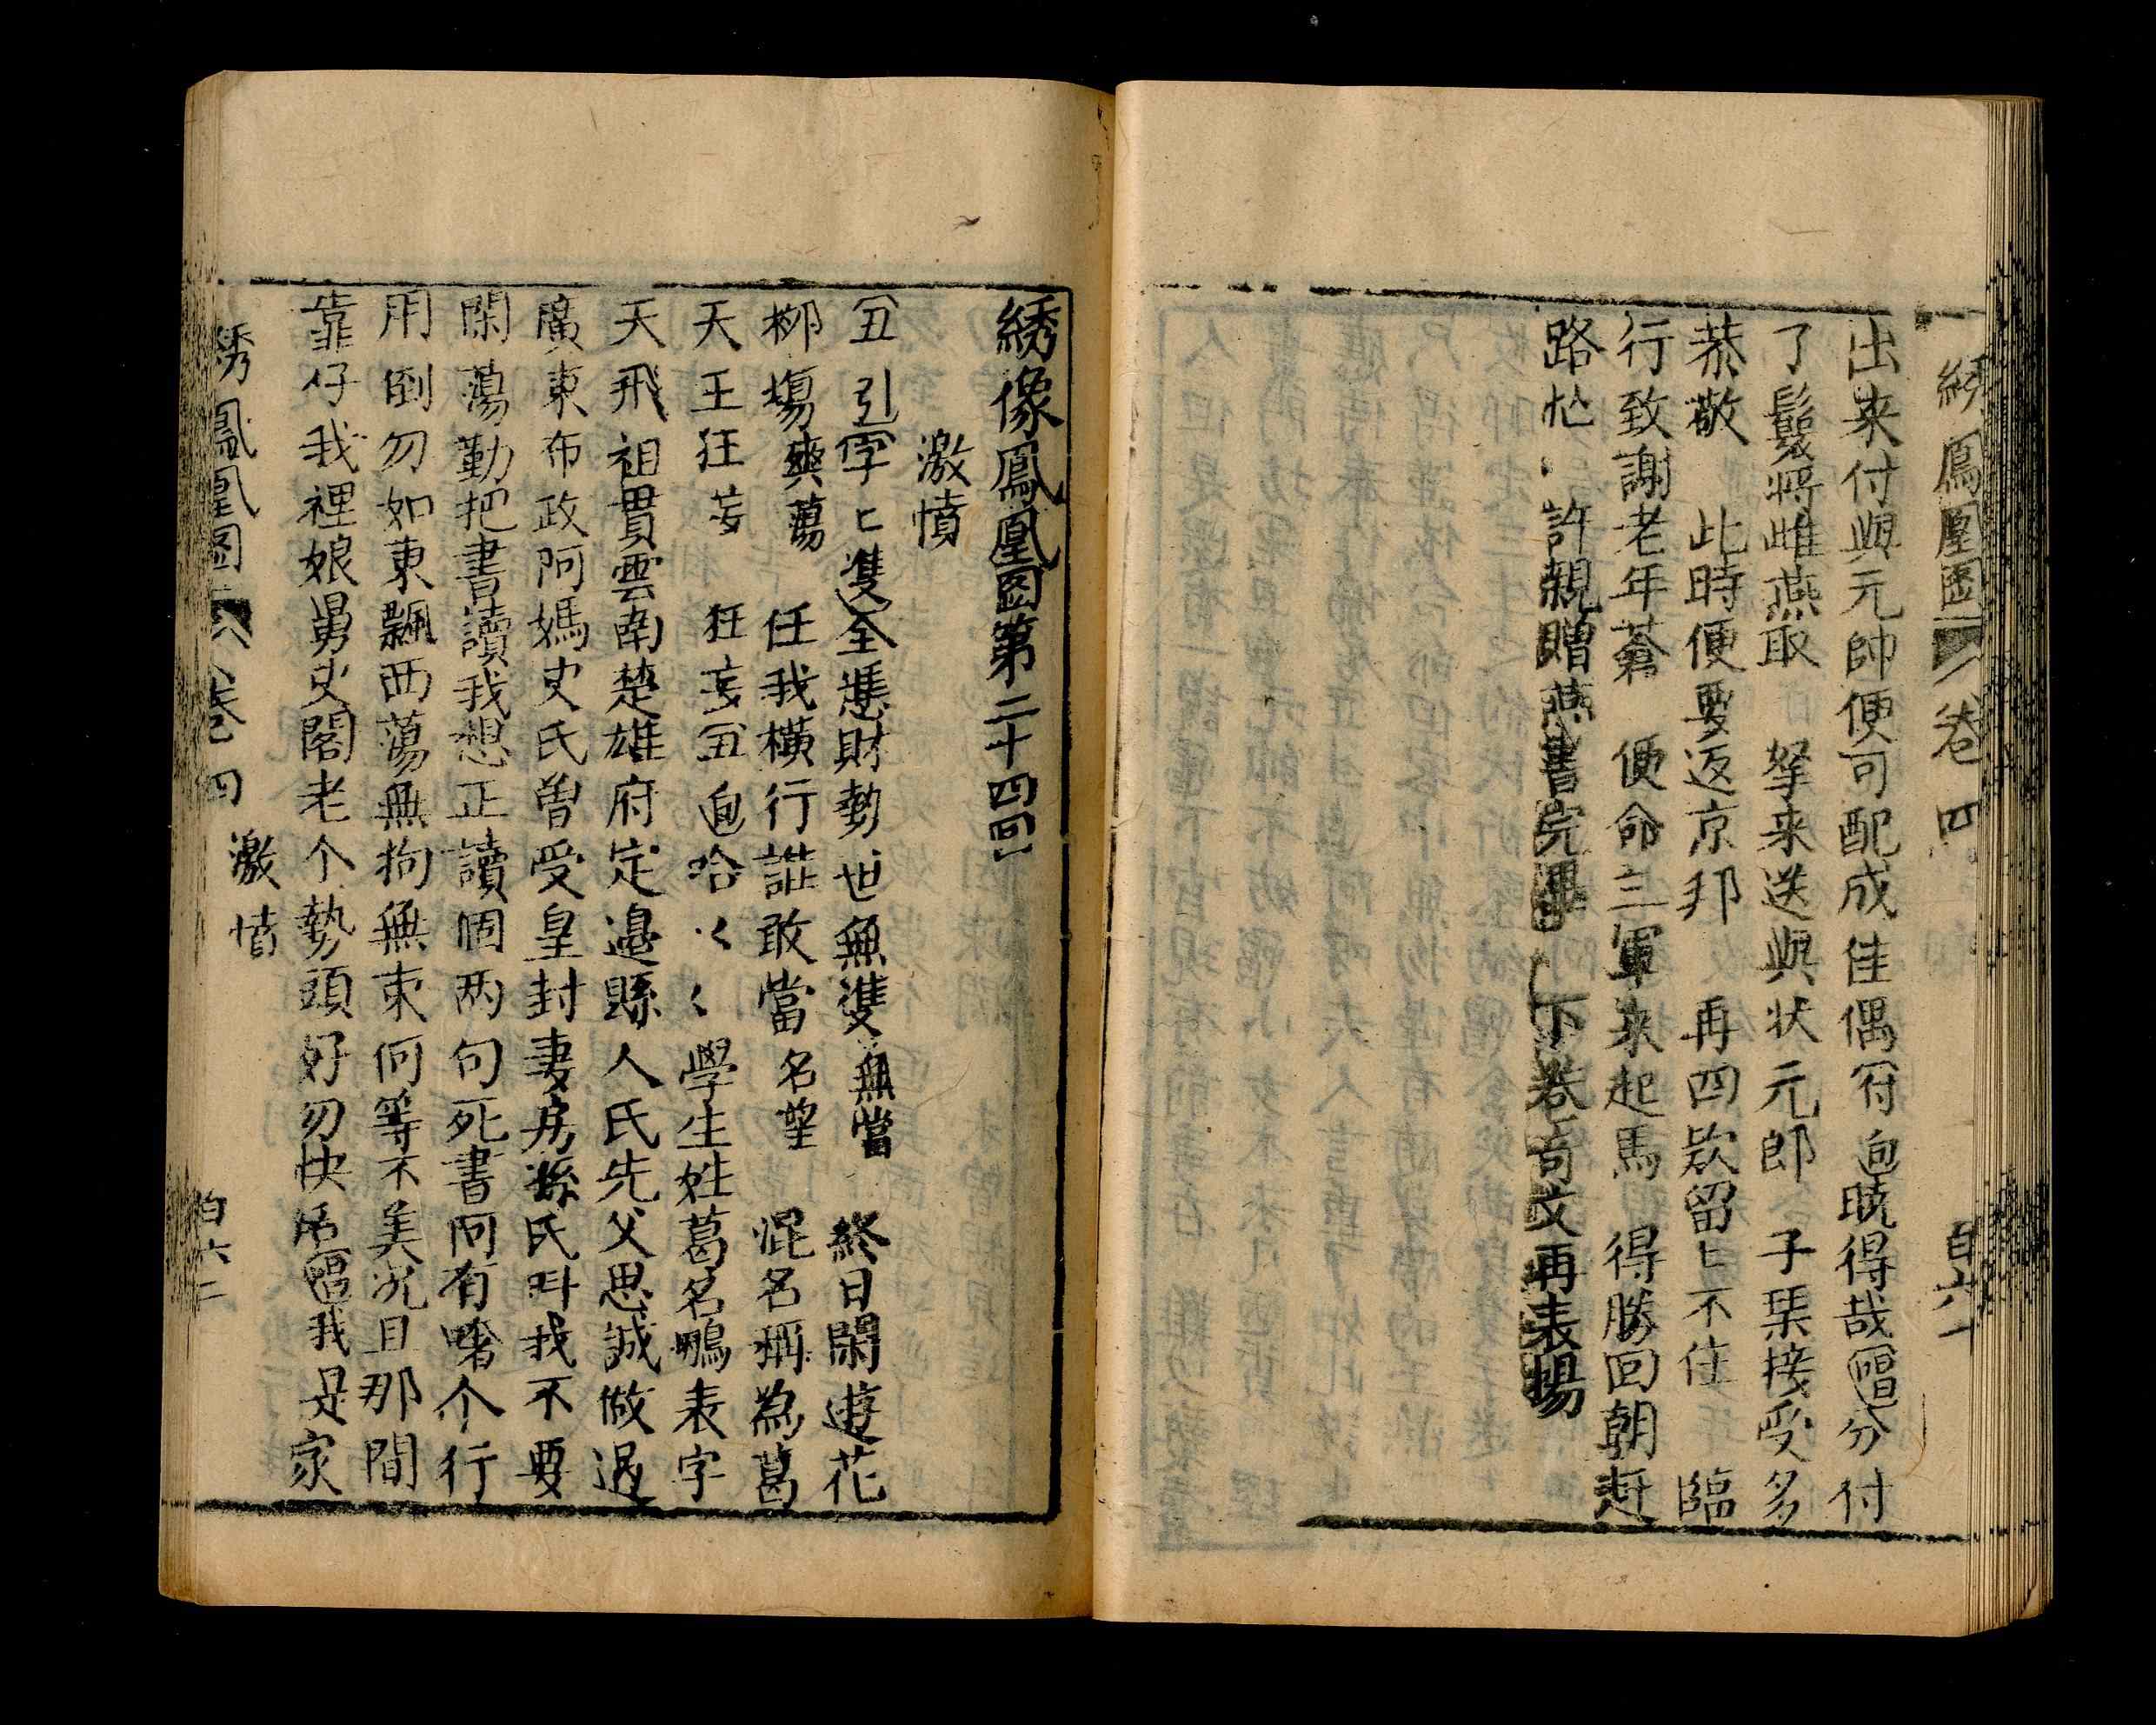 綉鳳凰图 卷四 百六一
出来付與元帥便可配成佳偶 符 逈 暁得哉 唱 分付
了鬟將雌燕取 拏来送與状元郎 子琹接受多
恭敬 此時便要返京邦 再四欵留ヒ不住 臨
行致謝老年蒼 便命三軍来起馬 得勝回朝赶
路忙 許親贈燕書完畢 下卷奇文再表揚
綉像鳳凰图第二十四回
激憤
丑 引 字ヒ雙全 慿財勢世無雙 無當 終日閑遊花
柳塲 爽蕩 任我橫行誰敢當 名望 混名稱為葛
天王 狂妄 狂妄 丑 逈 哈くく學生姓葛名鵰表字
天飛祖貫雲南楚雄府定邉縣人氏先父思誠做過
廣東布政阿媽史氏曽受皇封妻房孫氏呌我不要
閑蕩勤把書讀我想正讀個两句死書阿有啥个行
用倒勿如東飄西蕩無拘無束何等不美况且那間
靠仔我裡娘舅史閣老个勢頭好勿快活 唱 我是家
綉鳳凰图 卷四 激憤 百六二